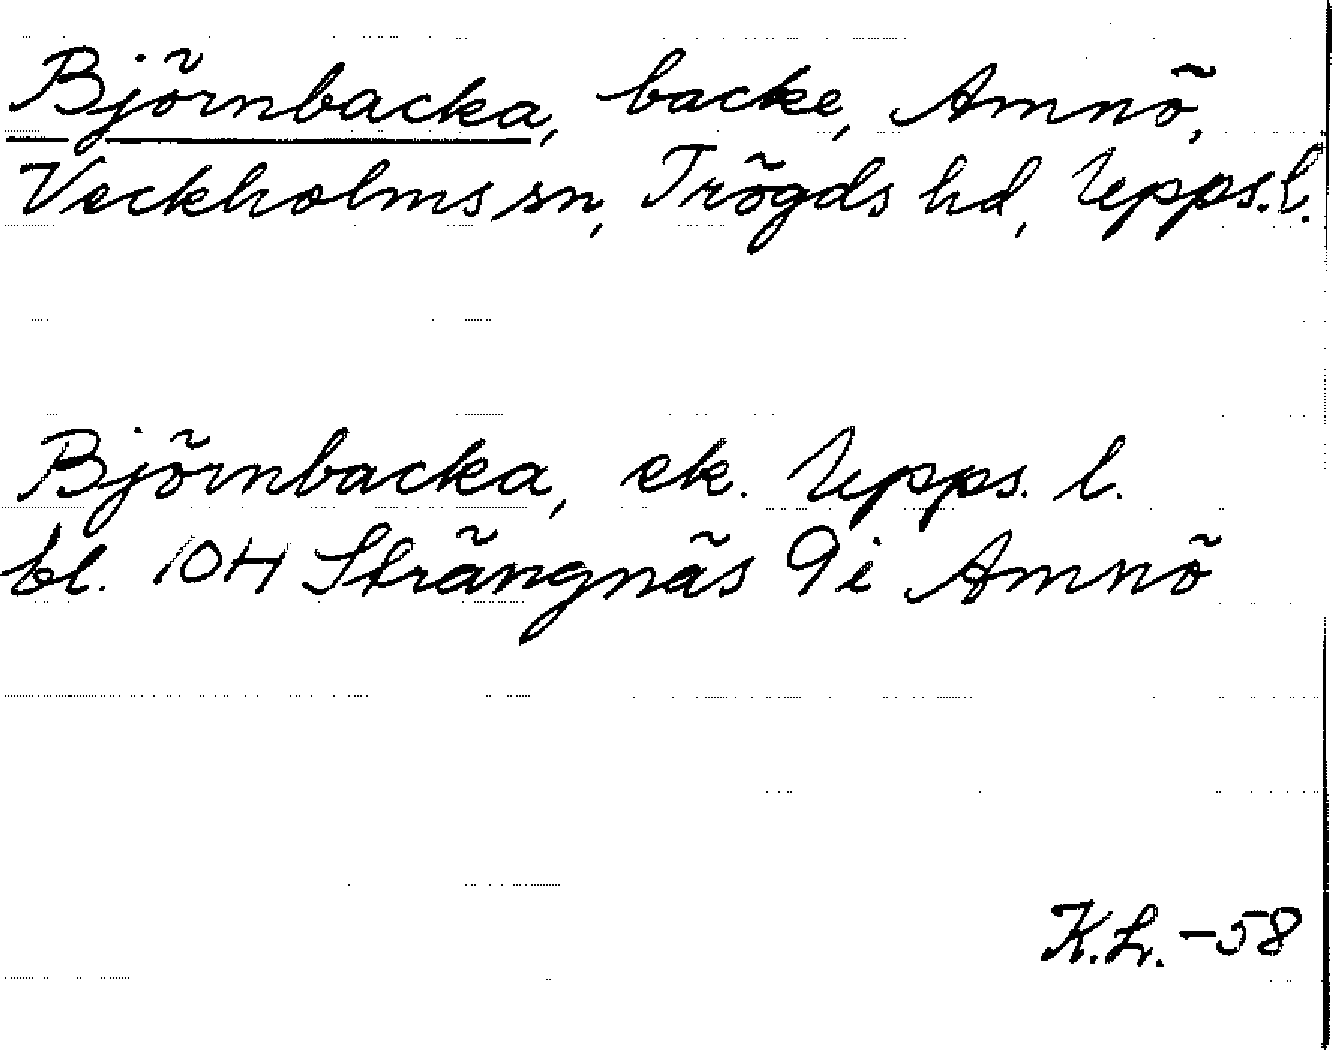 Björnbacka, backe, Amnö,
Veckholms sn, Trögds hd, Upps. l.
Björnbacka, ek. Upps. l.
bl. 10H Strängnäs 9i Amnö
K.L. -58